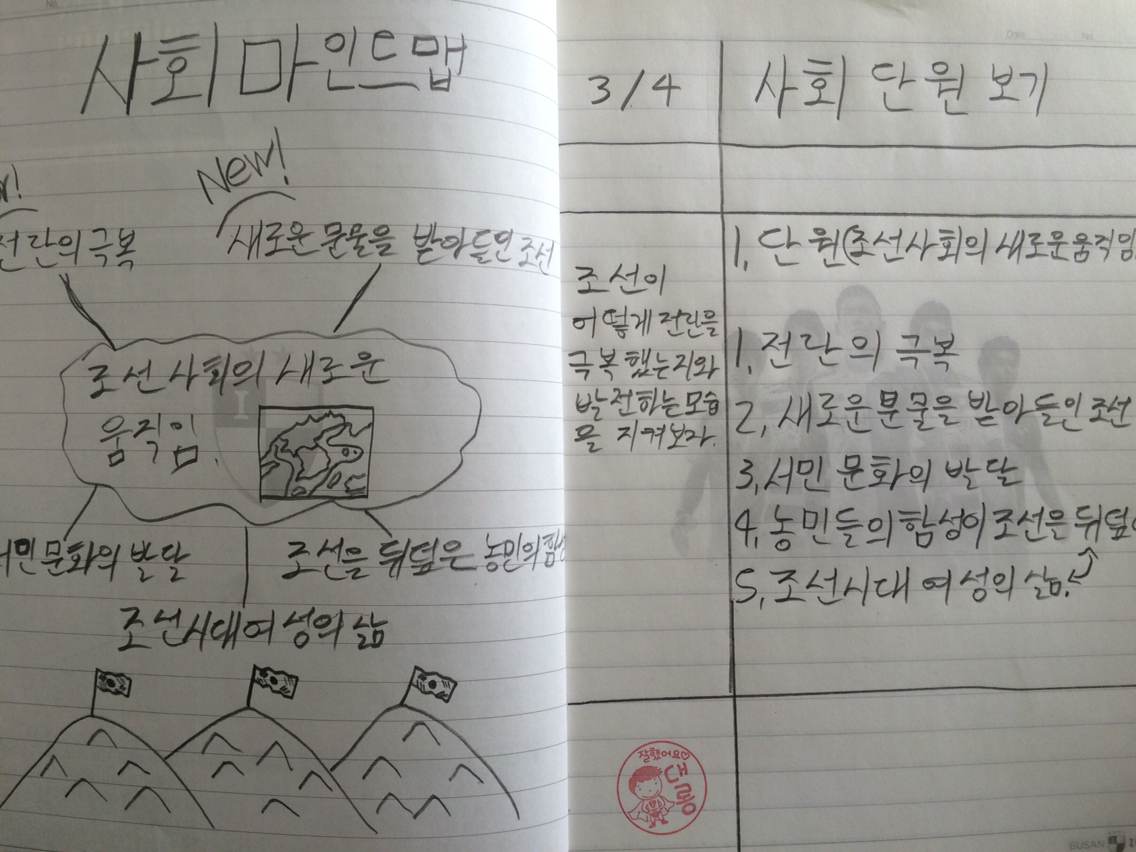 사회 마인드맵
New!
전란의 극복
새로운 문물을 받아들인 조선
조선 사회의 새로운
움직임.
서민 문화의 발달
조선을 뒤덮은 농민의 함성
조선시대 여성의 삶
3/4
사회 단원 보기
조선이
어떻게 전란을
극복 했는지와
발전하는 모습
을 지켜보자.
1. 단원(조선사회의 새로운 움직임
1, 전란의 극복
2, 새로운 문물을 받아들인 조선
3, 서민 문화의 발달
4, 농민들의 함성이 조선은 뒤덮
5, 조선시대 여성의 삶.
잘했어요♡
BUSAN I